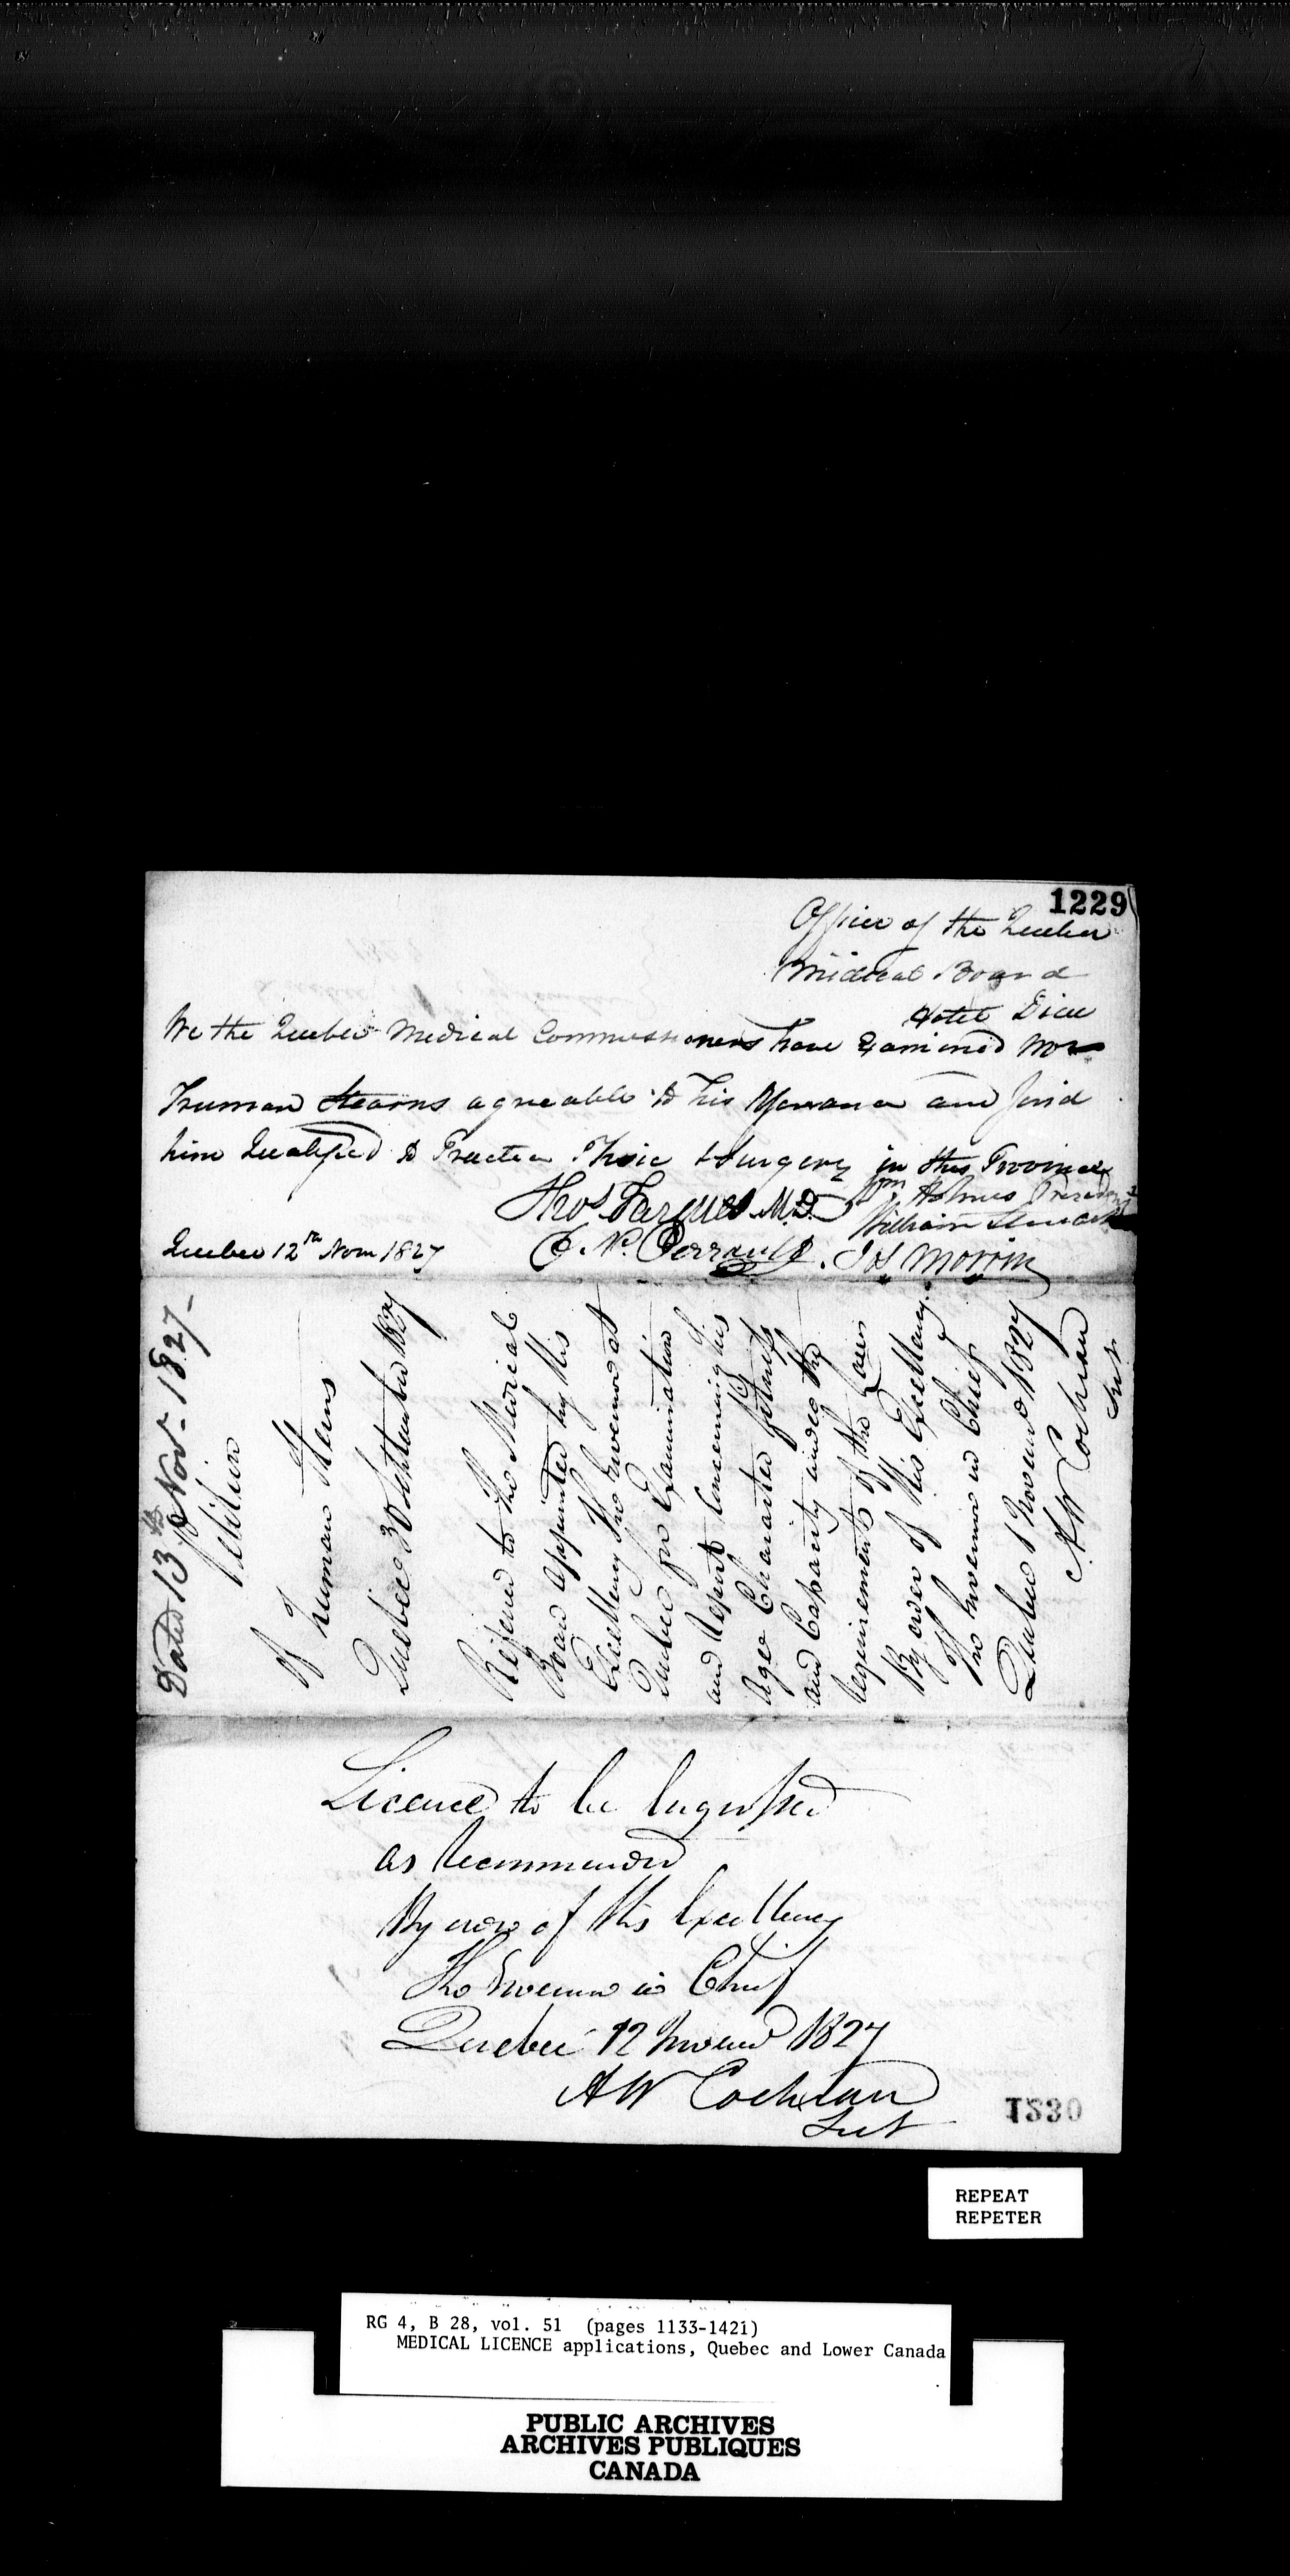 1229
Office of the Quebec
Medical Board
Hotel Dieu
We the Quebec Medical Commissioners have Examined Mr
Truman Stearns agreeable to his and find
him Qualified to Practice Phsic & Surgery in this Province
Wm Holmes President
Thos Fargues M.D. William
Quebec 12th Novr 1827 C. N. Perrault. Jos Morrin
Dated 13th Novr 1827-
Petition
of Truman Sterns
Quebec 30 September 1827
Referred to the Medical
Board appointed by His
Excellency the Governor at
Quebec for Examination
and Report concerning his
Age Character fitness
and Capacity under the
requirements of the Laws
By order of His Excellency
The Governor in Chief
Quebec 1 November 1827
AW Cochran
Sect
Licence to be Engrossed
as Recommended
By order of His Excellency
The Governor in Chief
Quebec 12 November 1827
AW Cochran
Sect
1230
REPEAT
REPETER
RG 4, B 28, vol. 51 (pages 1133-1421)
MEDICAL LICENCE applications, Quebec and Lower Canada
PUBLIC ARCHIVES
ARCHIVES PUBLIQUES
CANADA